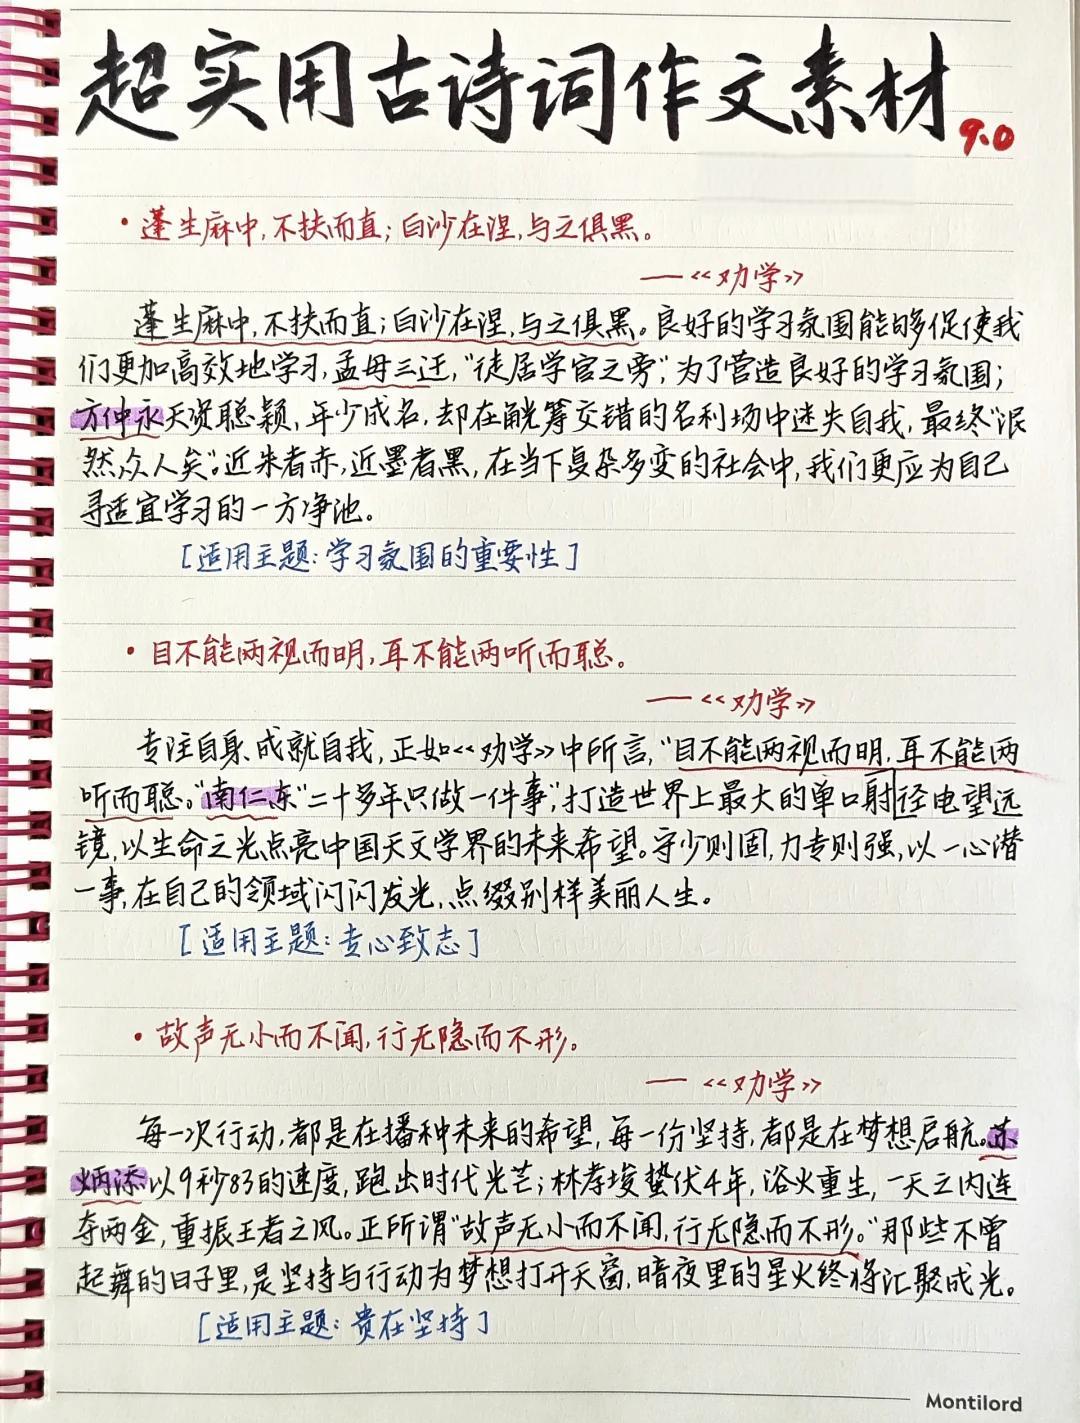 超实用古诗词作文素材 9.0
·蓬生麻中,不扶而直;白沙在涅,与之俱黑。
——《劝学》
蓬生麻中,不扶而直;白沙在涅,与之俱黑。良好的学习氛围能够促使我
们更加高效地学习,孟母三迁,“徙居学宫之旁”,为了营造良好的学习氛围;
方仲永天资聪颖,年少成名,却在觥筹交错的名利场中迷失自我,最终“泯
然众人矣”。近朱者赤,近墨者黑,在当下复杂多变的社会中,我们更应为自己
寻适宜学习的一方净池。
[适用主题:学习氛围的重要性]
·目不能两视而明,耳不能两听而聪。
——《劝学》
专注自身、成就自我,正如《劝学》中所言,“目不能两视而明,耳不能两
听而聪。”南仁东“二十多年只做一件事”,打造世界上最大的单口射径电望远
镜,以生命之光点亮中国天文学界的未来希望。守少则固,力专则强,以一心潜
一事,在自己的领域闪闪发光,点缀别样美丽人生。
[适用主题:专心致志]
·故声无小而不闻,行无隐而不形。
——《劝学》
每一次行动,都是在播种未来的希望,每一份坚持,都是在梦想启航。苏
炳添以9秒83的速度,跑出时代光芒;林孝埈蛰伏4年,浴火重生,一天之内连
夺两金,重振王者之风。正所谓“故声无小而不闻,行无隐而不形。”那些不曾
起舞的日子里,是坚持与行动为梦想打开天窗,暗夜里的星火终将汇聚成光。
[适用主题:贵在坚持]
Montilord